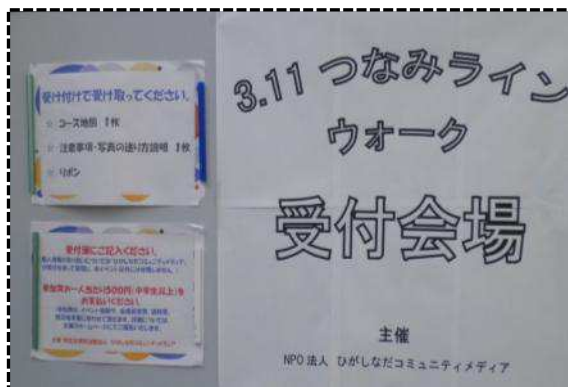 受け付けで受け取ってください。
☆ コース地図 1枚
☆ 注意事項・写真の送り方説明 1枚
☆ リボン
受付簿にご記入ください。
参加費お一人当たり500円(中学生以上)を
お支払いください。
3.11 つなみライン
ウォーク
受付会場
主催
NPO法人 ひがしなだコミュニティメディア